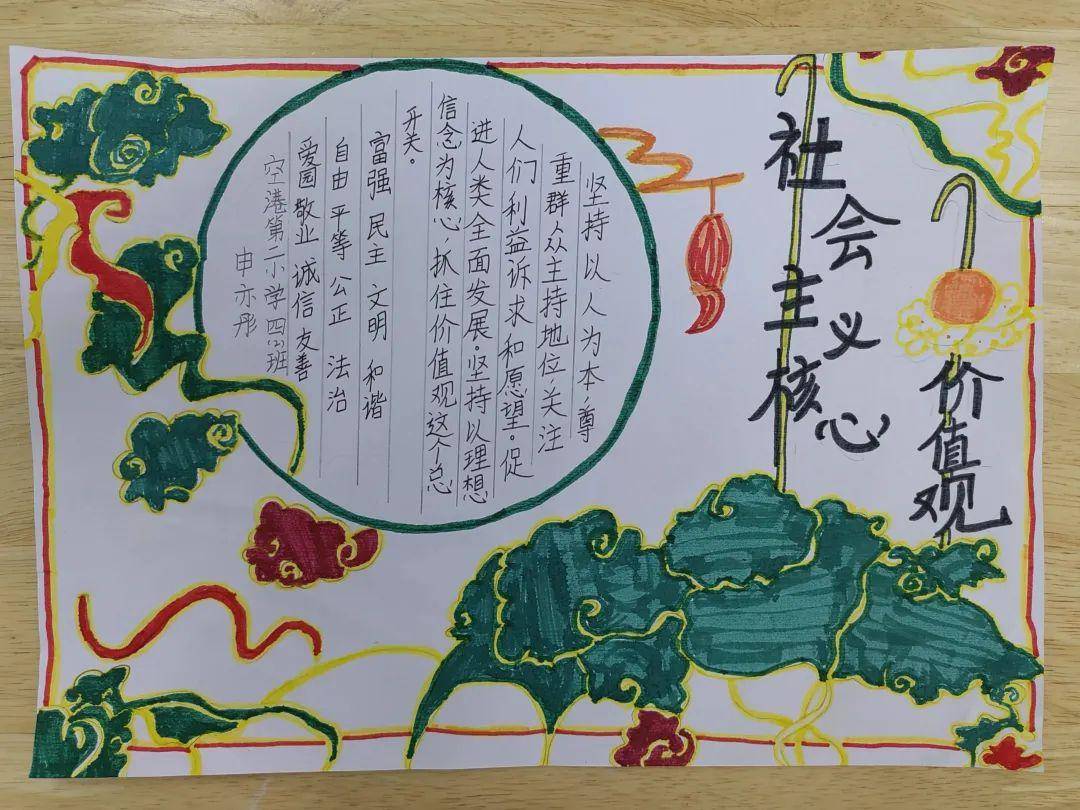 社会主义核心
价值观
坚持以人为本、尊
重群众主持地位、关注
人们利益诉求和愿望。促
进人类全面发展。坚持以理想
信念为核心、抓住价值观这个总
开关。
富强 民主 文明 和谐
自由 平等 公正 法治
爱国 敬业 诚信 友善
空港第二小学四(2)班
申亦彤